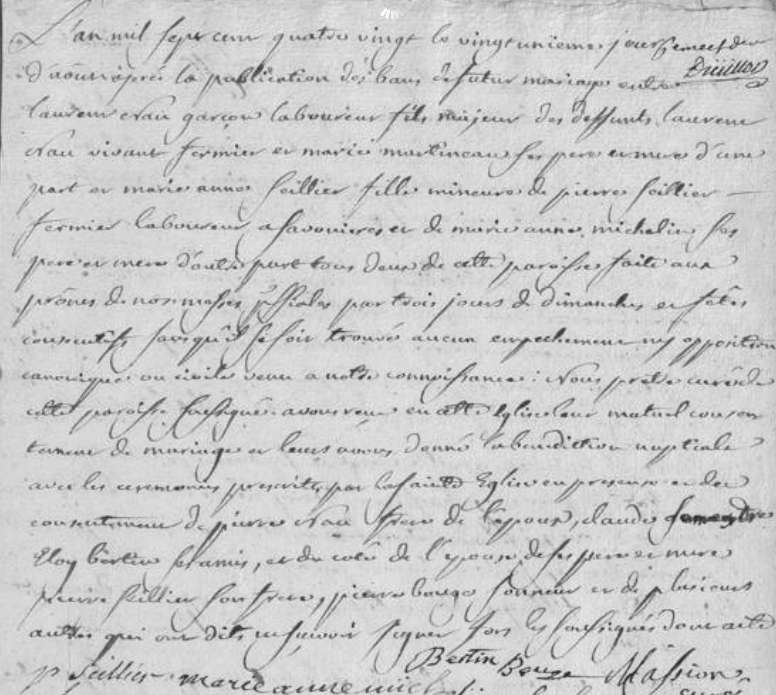 L'an mil sept cent quatre vingt le vingt unieme jour
d'aoust après la publication des bans de futur mariage entre
laurent Nau garçon laboureur fils majeur des deffunts laurent
Nau vivant fermier et marie martineau ses pere et mere d'une
part et marie anne Seillier fille mineure de pierre Seillier
fermier laboureur a Savonieres et de marie anne michelin ses
pere et mere d'autre part tous deux de cette paroisse faite aux
prônes de nos messes pssiales par trois jours de dimanches et fêtes
consecutifs sans qu'il se soit trouvé aucun empechement ny opposition
canonique ou civile venu a notre connoissance : Nous prêtre curé de
cette paroisse soussigné avons reçu en cette Eglise leur mutuel consen
tement de mariage et leurs avons donné la benediction nuptiale
avec les ceremonies prescrites par la sainte Eglise en presence et du
consentement de pierre Nau frere de l'epoux, claude
Eloy bertin ses amis, et du coté de l'epouse de ses pere et mere
pierre Seillier son frere, pierre bouge sonneur et de plusieurs
autres qui ont dits ne savoir signer fors les soussignés dont acte
Bertin Bouge Massion
p Seillier marie anne